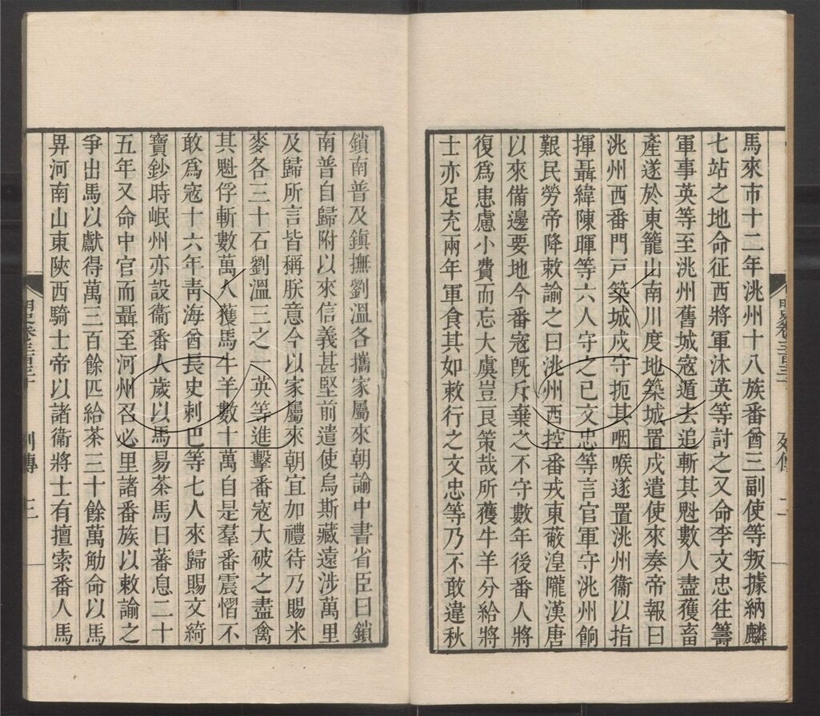 馬來市十二年洮州十八族番酋三副使等叛據納麟
七站之地命征西將軍沐英等討之又命李文忠往籌
軍事英等至洮州舊城寇遁去追斬其魁數人盡獲畜
產遂於東籠山南川度地築城置戍遣使來奏帝報曰
洮州西番門戶築城戍守扼其咽喉遂置洮州衞以指
揮聶緯陳暉等六人守之已文忠等言官軍守洮州餉
艱民勞帝降敕諭之曰洮州西控番戎東蔽湟隴漢唐
以來備邊要地今番寇旣斥棄之不守數年後番人將
復爲患慮小費而忘大虞豈良策哉所獲牛羊分給將
士亦足充兩年軍食其如敕行之文忠等乃不敢違秋
明史卷三百三十 列傳 二
鎖南普及鎮撫劉溫各攜家屬來朝諭中書省臣曰鎖
南普自歸附以來信義甚堅前遣使烏斯藏遠涉萬里
及歸所言皆稱朕意今以家屬來朝宜加禮待乃賜米
麥各三十石劉溫三之一英等進擊番寇大破之盡禽
其魁俘斬數萬人獲馬牛羊數十萬自是羣番震慴不
敢爲寇十六年靑海酋長史剌巴等七人來歸賜文綺
寶鈔時岷州亦設衞番人歲以馬易茶馬日蕃息二十
五年又命中官而聶至河州召必里諸番族以敕諭之
爭出馬以獻得萬三百餘匹給茶三十餘萬觔命以馬
畀河南山東陝西騎士帝以諸衞將士有擅索番人馬
明史卷三百三十 列傳 三